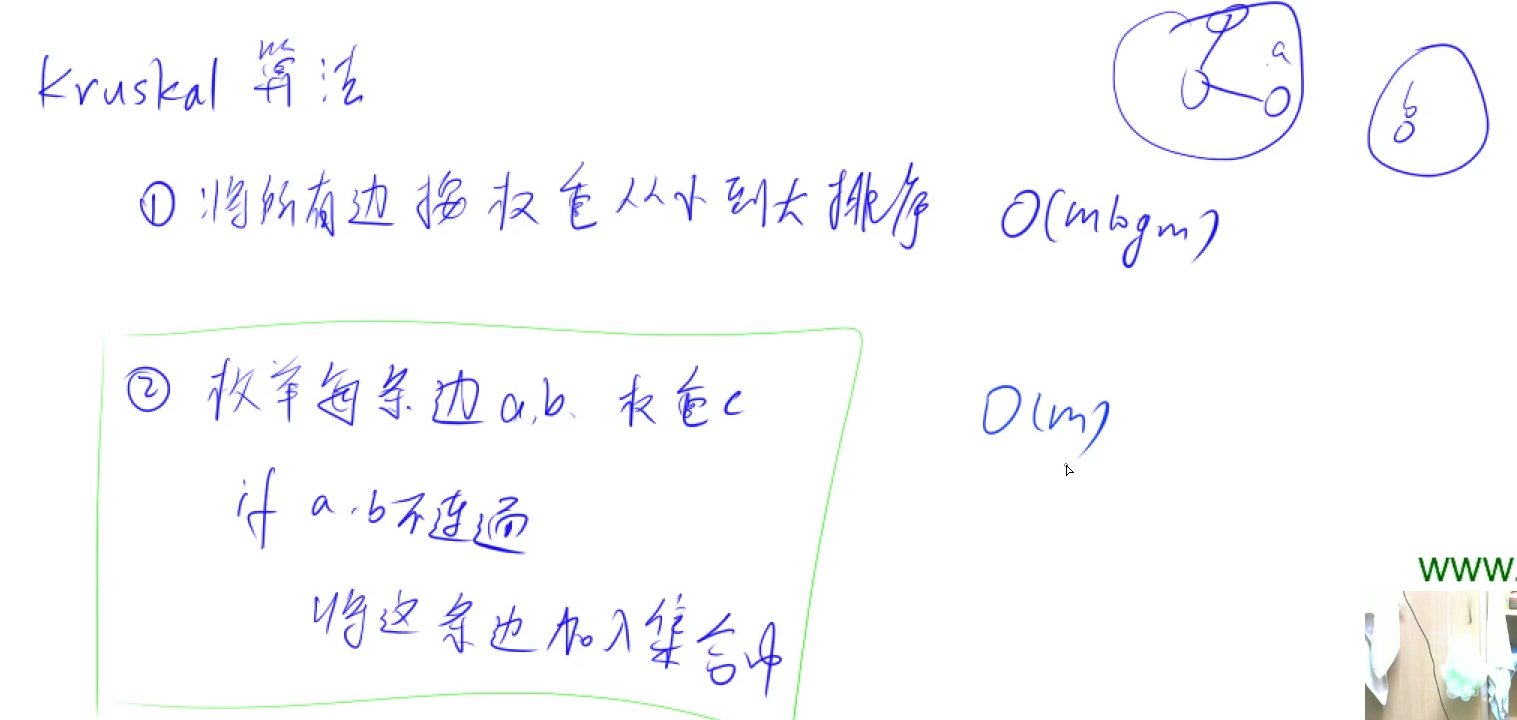 Kruskal 算法
a
b
① 将所有边按权重从小到大排序 O(mlogm)
② 枚举每条边a,b、权重c O(m)
if a.b不连通
将这条边加入集合中
www.